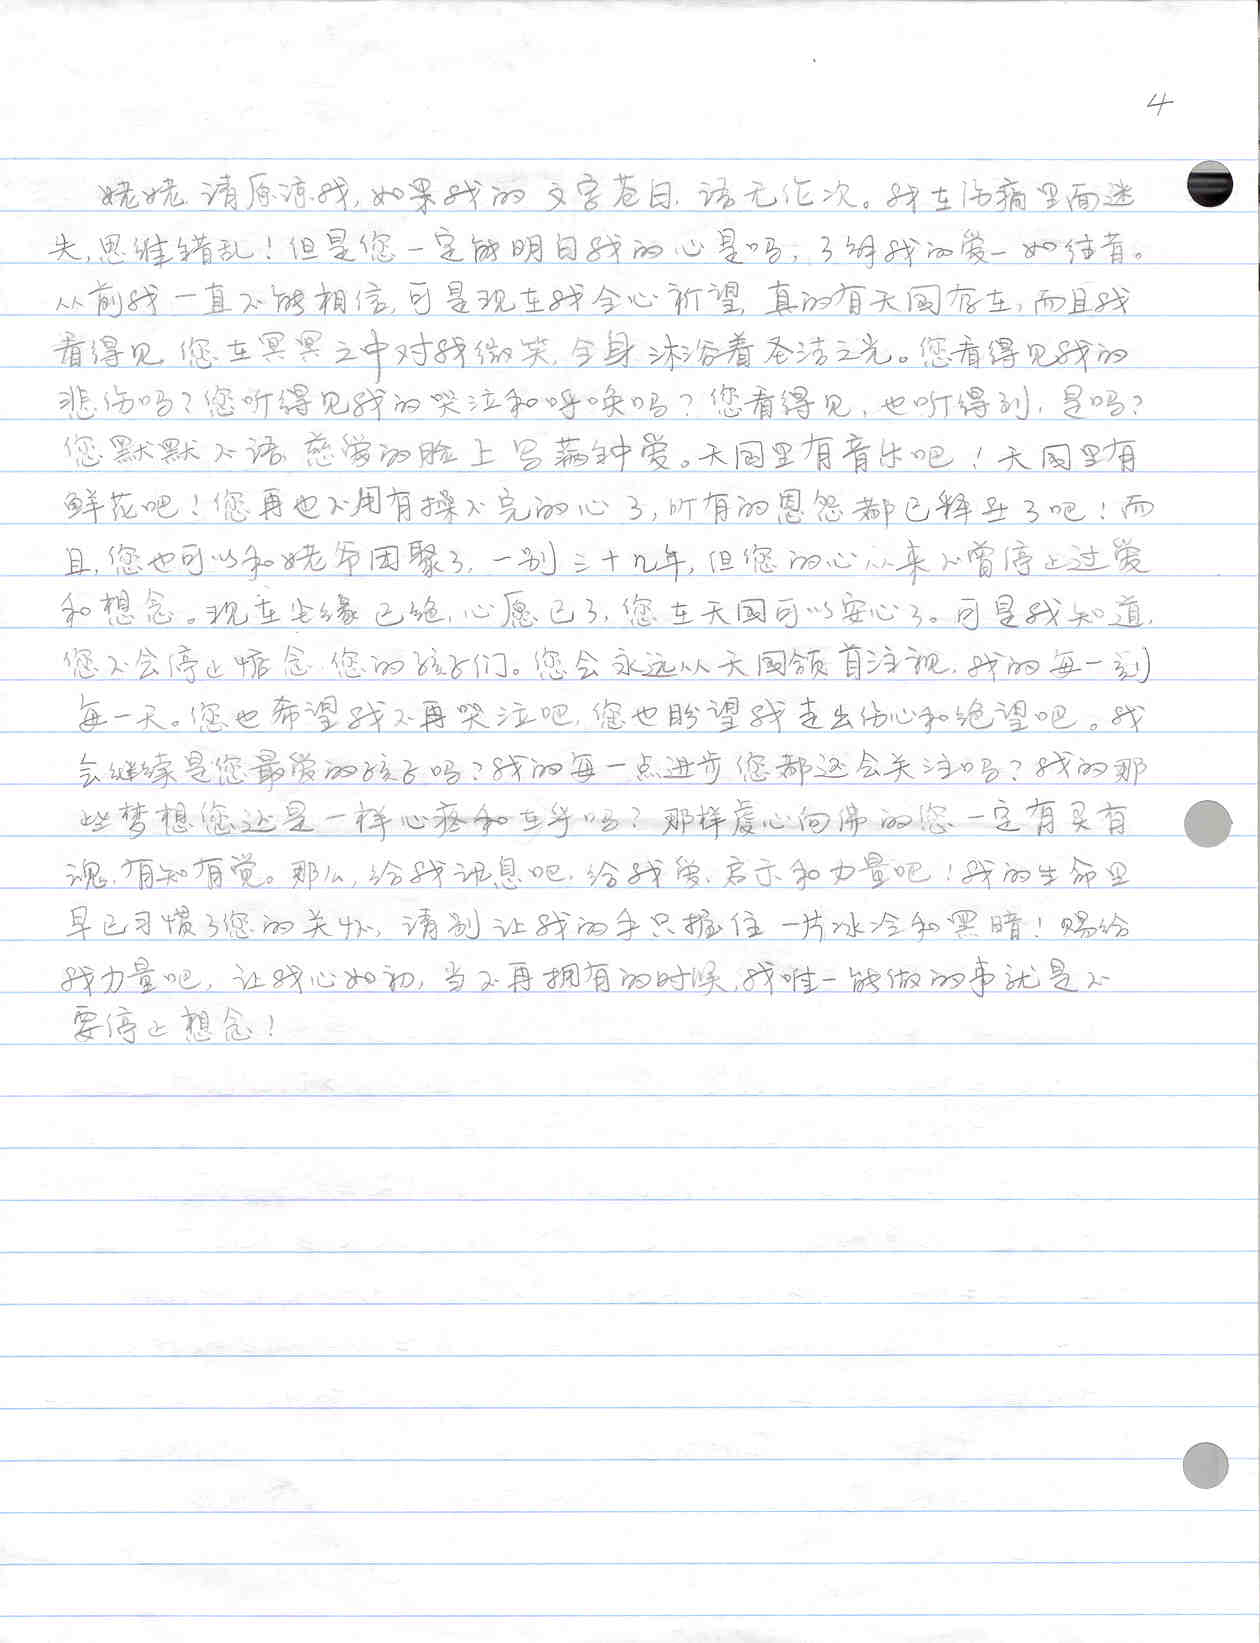 4
姥姥,请原凉我,如果我的文字苍白,语无伦次。我在伤痛里面迷
失,思维错乱!但是您一定能明白我的心是吗,了解我的爱一如往昔。
从前我一直不能相信,可是现在我全心祈望,真的有天国存在,而且我
看得见,您在冥冥之中对我微笑,全身沐浴着圣洁之光。您看得见我的
悲伤吗?您听得见我的哭泣和呼唤吗?您看得见,也听得到,是吗?
您默默不语,慈爱的脸上写满钟爱。天国里有音乐吧!天国里有
鲜花吧!您再也不用有操不完的心了,所有的恩怨都已释然了吧!而
且,您也可以和姥爷团聚了,一别三十九年,但您的心从来不曾停止过爱
和想念。现在尘缘已绝,心愿已了,您在天国可以安心了。可是我知道,
您不会停止惦念您的孩子们。您会永远从天国颔首注视,我的每一刻
每一天。您也希望我不再哭泣吧,您也盼望我走出伤心和绝望吧。我
会继续是您最爱的孩子吗?我的每一点进步您都还会关注吗?我的那
些梦想您还是一样心疼和在乎吗?那样虔心向佛的您一定有灵有
魂,有知有觉。那么,给我讯息吧,给我爱、启示和力量吧!我的生命里
早已习惯了您的关怀,请别让我的手只握住一片冰冷和黑暗!赐给
我力量吧,让我心如初,当不再拥有的时候,我唯一能做的事就是不
要停止想念!